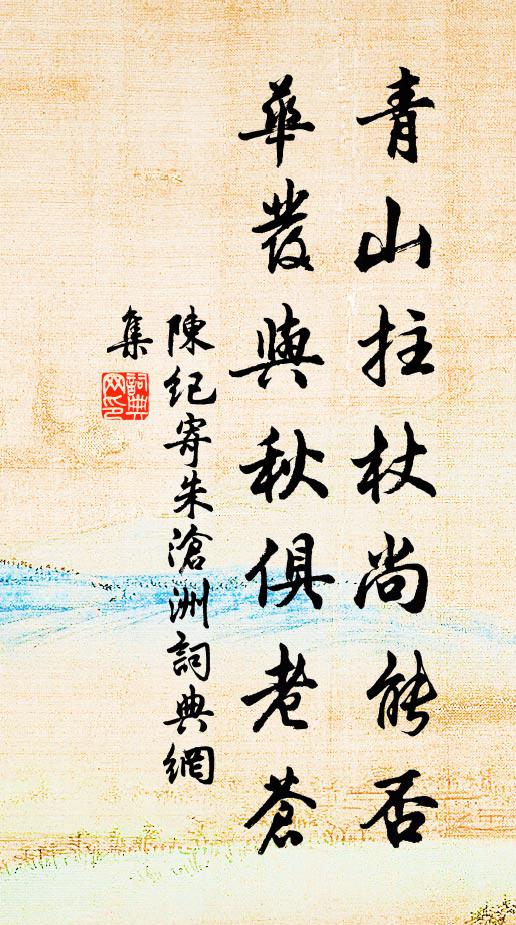 青山拄杖尚能否
華發與秋俱老蒼
陳紀寄朱滄洲詞典網
集
詞典網印